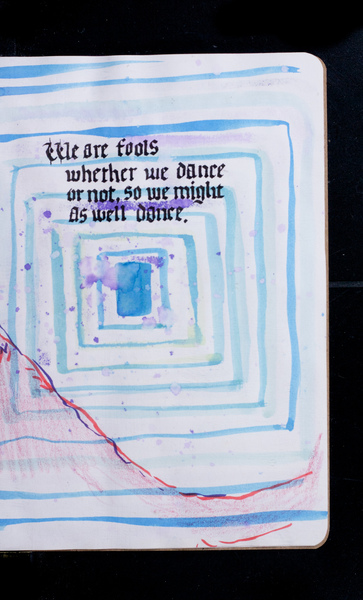 We are fools
whether we dance
or not, so we might
as well dance.